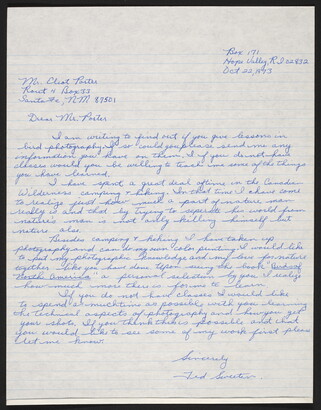 Box 171
Hope Valley, R.I 02832
Oct 22, 1973
Mr. Eliot Porter
Rout 4 Box 33
Santa Fe, NM 87501
Dear Mr. Porter
I am writing to find out if you give lessons in
bird photography. If so could you please send me any
information you have on them, & if you do not hold
classes would you be willing to teach me some of the things
you have learned.
I have spent a great deal of time in the Canadian
Wilderness camping & hiking. In that time I have come
to realize just how much a part of nature man
really is and that by trying to seperate his world from
nature's man is not only killing himself but
nature also.
Besides camping & hiking I have taken up
photography and can do my own color printing. I would like
to put my photographic knowledge and my love for nature
together like you have done. Upon seeing the book Birds of
North America a personal selection by you, I realize
how much more there is for me to learn.
If you do not have classes I would like
to spend as much time as possible with you learning
the technical aspects of photography and how you get
your shots. If you think this is possible and that
you would like to see some of my work first please
let me know.
Sincerely
Ted